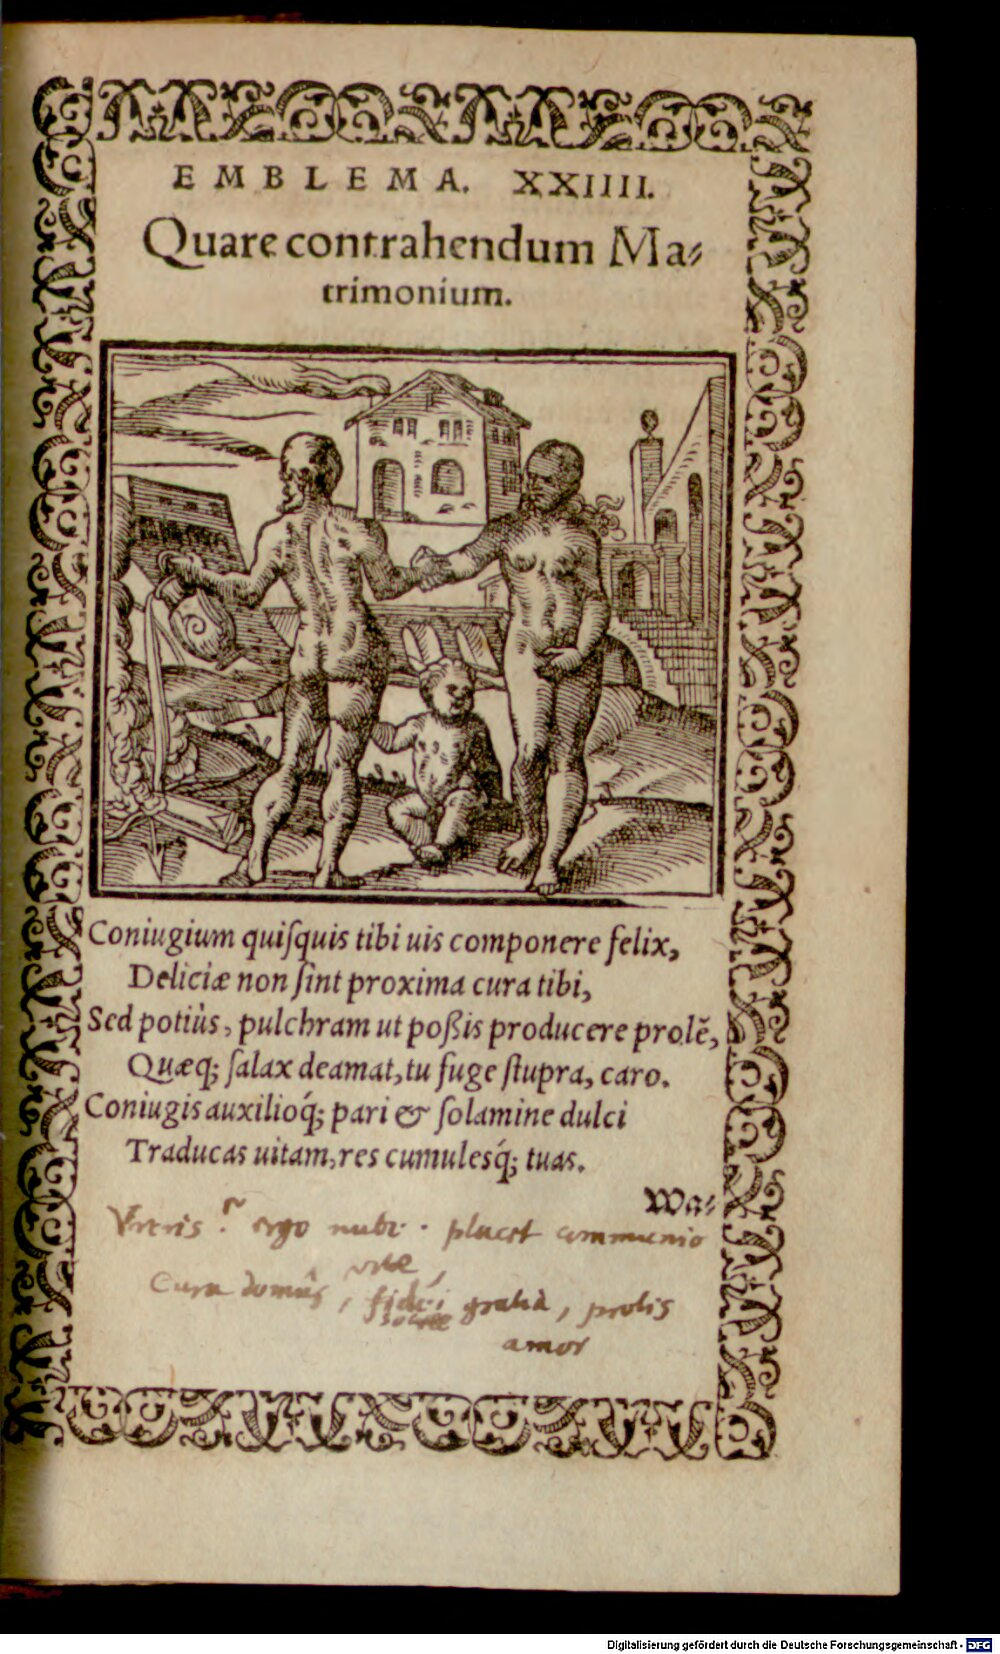 EMBLEMA. XXIIII.
Quare contrahendum Ma⸗
trimonium.
Coniugium quiſquis tibi uis componere felix,
Deliciæ non ſint proxima cura tibi,
Sed potiùs, pulchram ut poßis producere prolē,
Quæq; ſalax deamat, tu fuge ſtupra, caro.
Coniugis auxilioq́; pari & ſolamine dulci
Traducas uitam, res cumulesq́; tuas.
Wa⸗
ergo placet communio
vitæ,
Cura domûs, gratia, prolis
amor
Digitalisierung gefördert durch die Deutsche Forschungsgemeinschaft - DFG